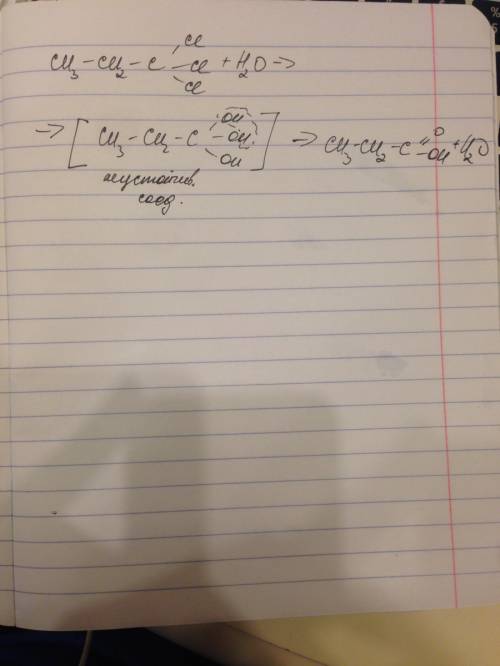 CH3 - CH2 - C - Cl Cl Cl + H2O →
→ [ CH3 - CH2 - C - OH OH OH ] → CH3 - CH2 - C = O - OH + H2O
неустойчив.
соед.